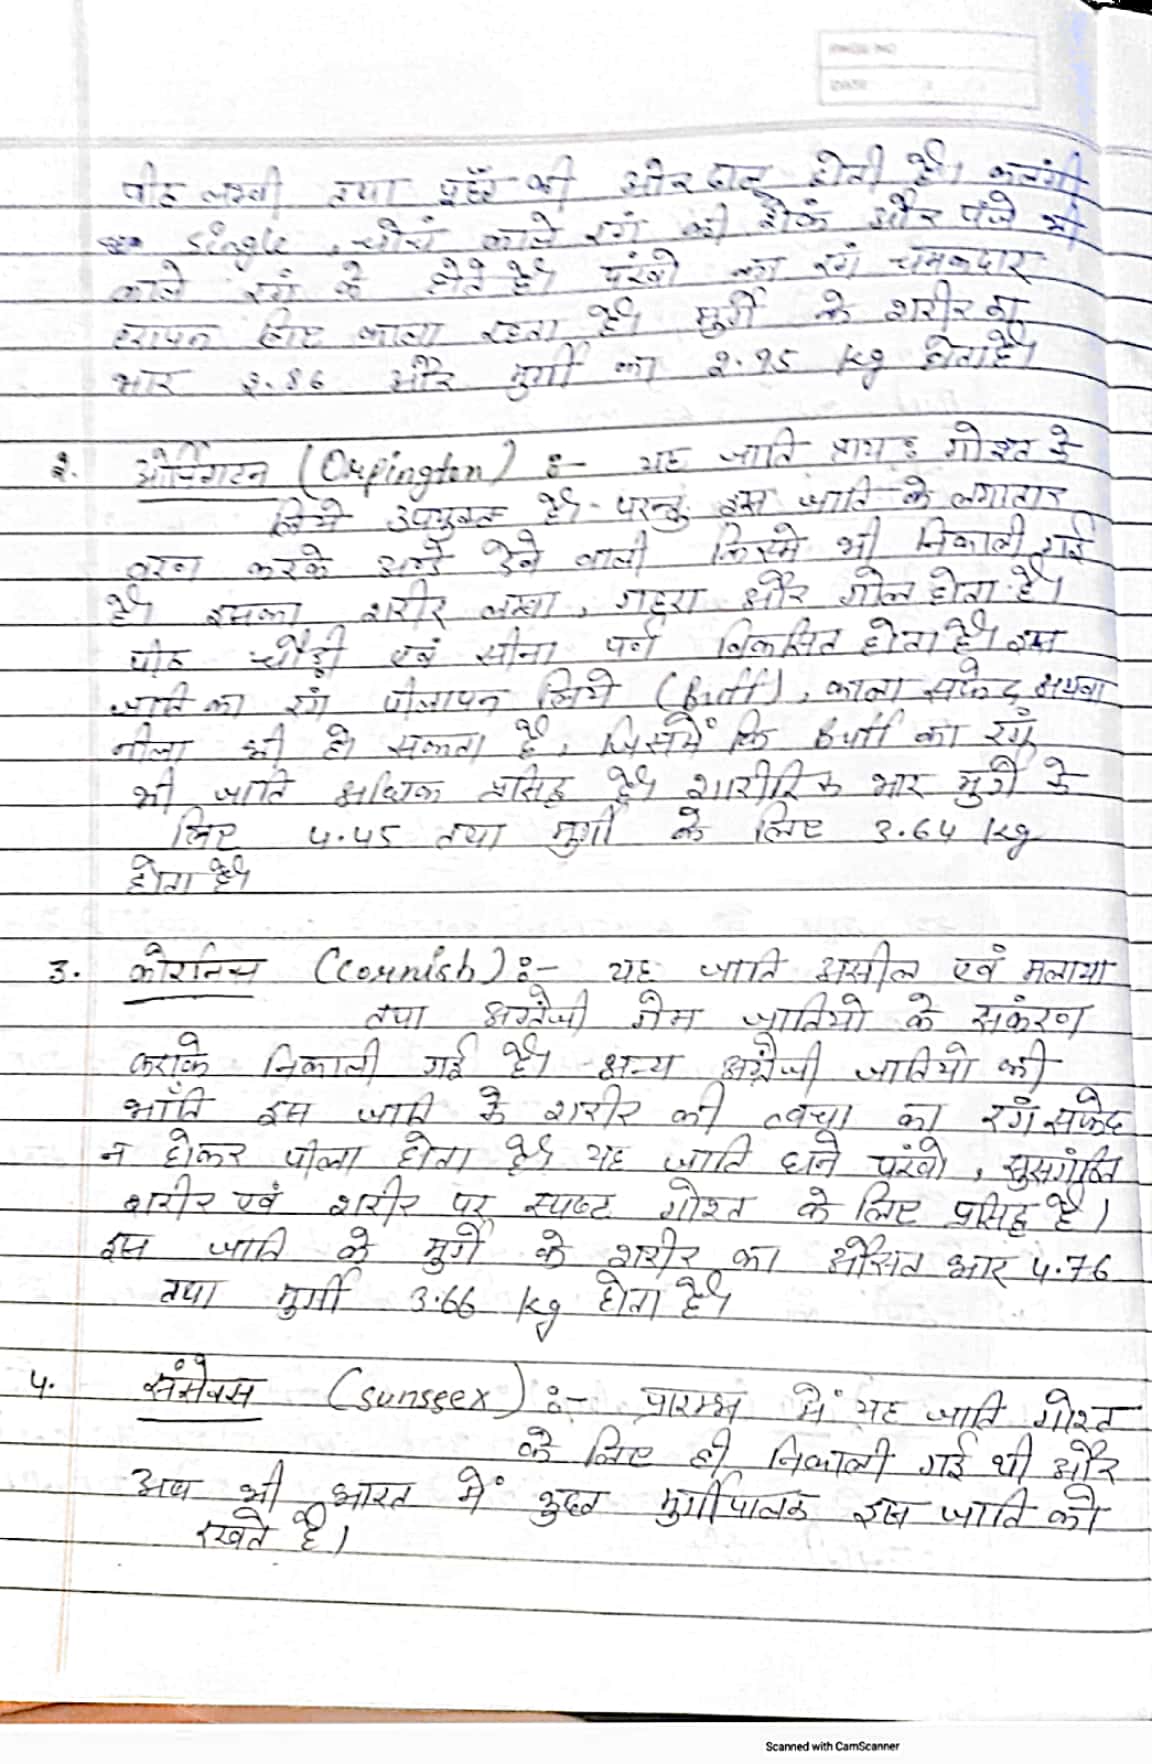 पीठ लम्बी तथा पूँछ की ओर ढालू होती है। कलंगी
single, चोंच काले रंग की होकं और पंजे भी
काले रंग के होते है। पंरवो का रंग चमकदार
हरापन लिए काला रहता है। मुर्गे के शरीर का
भार 3.86 और मुर्गी का 2.95 kg होता है।
2. ओर्पिगटन (Orpington) :- यह जाति प्रायः गोश्त के
लिये उपयुक्त है। परन्तु इस जाति के लगातार
वरण करके अण्डे देने वाली किस्मे भी निकाली गई
है। इसका शरीर लम्बा, गहरा और गोल होता है।
पीठ चौड़ी एवं सीना पूर्ण विकसित होता है। इस
जाति का रंग पीलापन लिये (Buff), काला सफेद अथवा
नीला भी हो सकता है, जिसमें कि Buff का रंग
की जाति अधिक प्रसिद्ध है। शारीरिक भार मुर्गे के
लिए 4.45 तथा मुर्गी के लिए 3.64 kg
होता है।
3. कोरनिस (Cornish) :- यह जाति असील एवं मलाया
तथा अग्रेजी गेम जातियो के संकरण
कराके निकाली गई है। अन्य अंग्रेजी जातियो की
भाँति इस जाति के शरीर की त्वचा का रंग सफेद
न होकर पीला होता है। यह जाति घने पंरवो, सुसगंठित
शरीर एवं शरीर पर स्पष्ट गोश्त के लिए प्रसिद्ध है।
इस जाति के मुर्गे के शरीर का औसत भार 4.76
तथा मुर्गी 3.66 kg होता है।
4. संसेक्स (Sunseex) :- प्रारम्भ में यह जाति गोश्त
के लिए ही निकाली गई थी और
अब भी भारत में कुछ मुर्गीपालक इस जाति को
रखते है।
Scanned with CamScanner